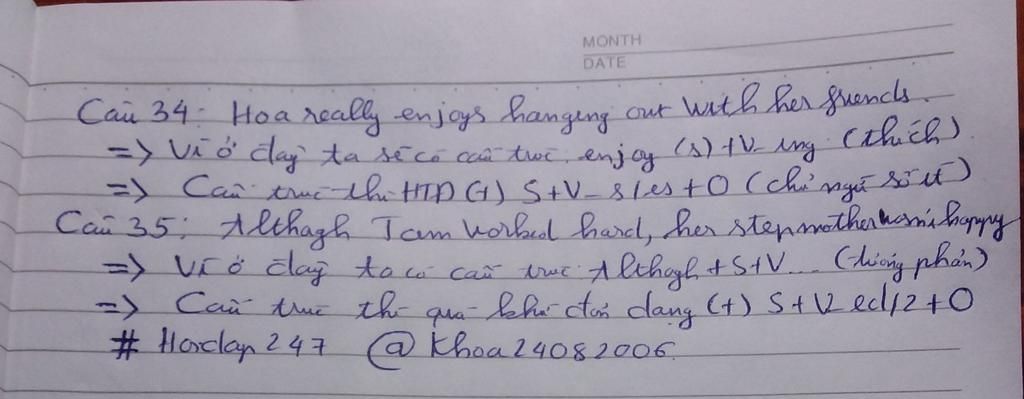 MONTH
DATE
Câu 34: Hoa really enjoys hanging out with her friends.
=> Vì ở đây ta sẽ có cấu trúc enjoy (s) + V-ing (thích)
=> Cấu trúc thì HTĐ (+) S + V-s/es + O (chủ ngữ số ít)
Câu 35: Althagh Tam worked hard, her stepmother wasn't happy
=> Vì ở đây ta có cấu trúc Althogh + S + V... (tương phản)
=> Cấu trúc thì quá khứ đơn dạng (+) S + V ed/2 + O
# Hoclap247 @Khoa24082006